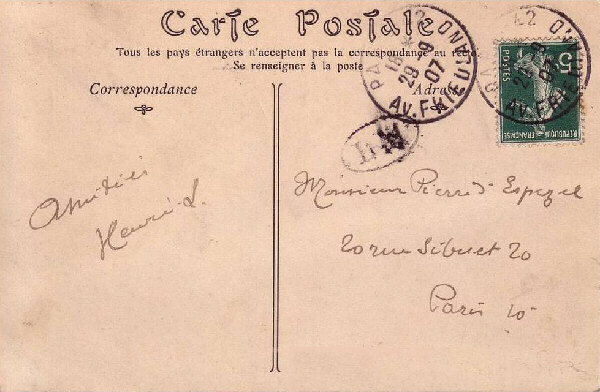 Carte Postale
Tous les pays étrangers n'acceptent pas la correspondance au recto
Se renseigner à la poste
Correspondance
Adresse
PA
29 9
07
Av. FRIEDLAND
5
POSTES
REPUBLIQUE FRANÇAISE
Amitiés
Henri L.
Monsieur Pierre d'Espezel
20 rue Sibuet 20
Paris